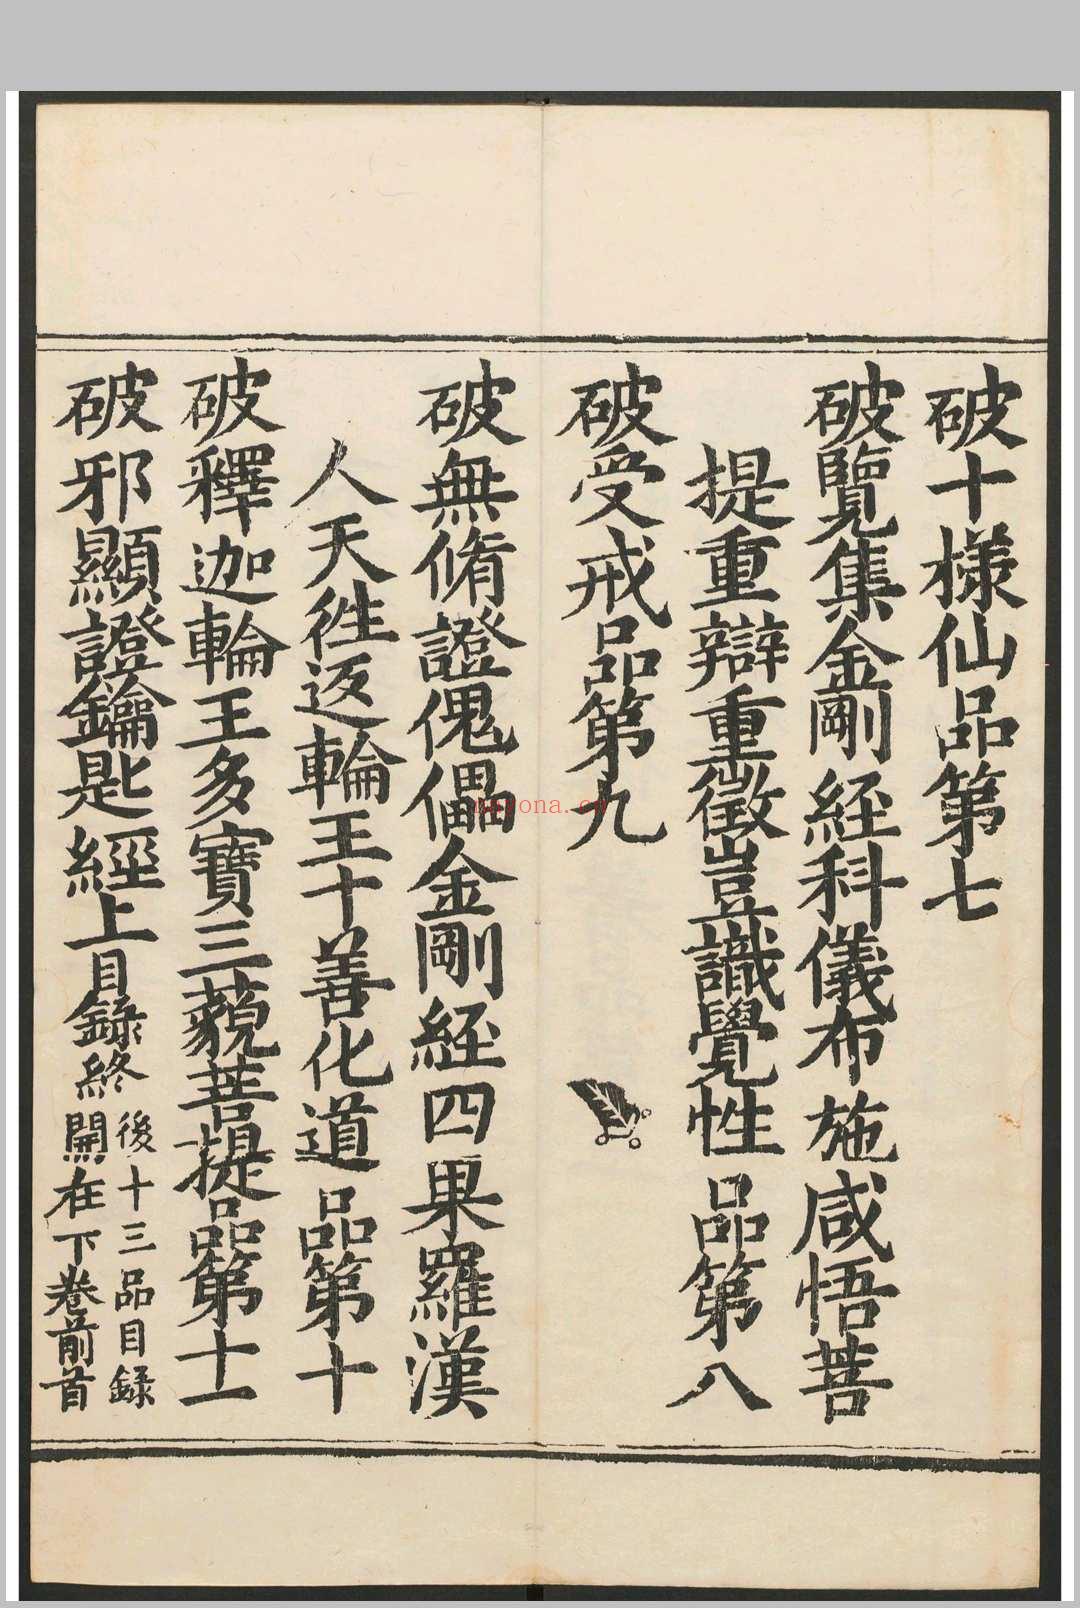 破十樣仙品第七
破覽集金剛經科儀布施咸悟菩
提重辯重徵豈識覺性品第八
破受戒品第九
破無脩證傀儡金剛經四果羅漢
人天徃返輪王十善化道品第十
破釋迦輪王多寶三藐菩提品第十一
破邪顯證鑰匙經上目錄終
後十三品目錄
開在下卷前首